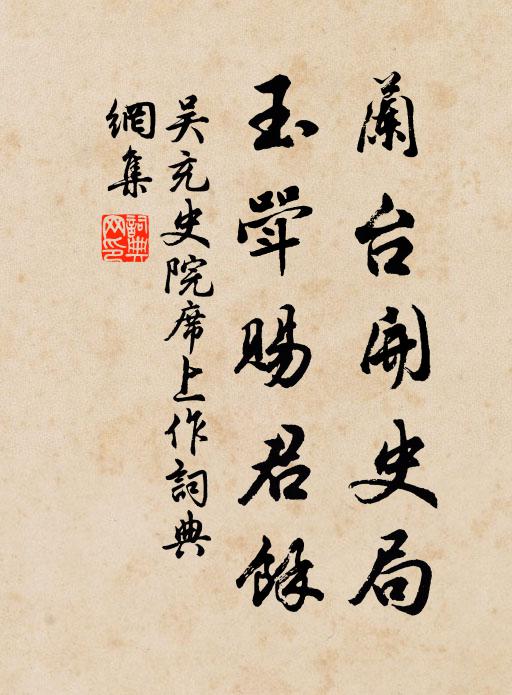 蘭台開史局
玉斝賜君餘
吴充史院席上作詞典
網集
詞典網印